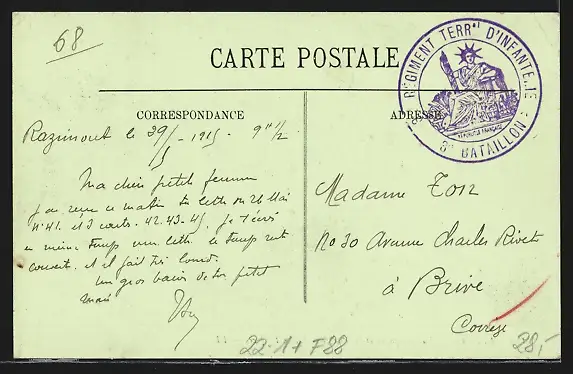 68
CARTE POSTALE
RÉGIMENT TERR^AL D'INFANTERIE
8^e BATAILLON
RÉPUBLIQUE FRANÇAISE
CORRESPONDANCE
ADRESSE
Razimont le 29/5 - 1915 - 9h 1/2
Ma chère petite femme
J'ai reçu ce matin ta lettre du 26 Mai
N° 41. et 3 cartes. 42.43-45. Je t'écris
en même temps une lettre. Le temps est
couvert. et il fait très lourd.
Un gros baiser de ton petit
mari
Madame
No 30 Avenue Charles Rivet
à Brive
Corrèze
22-1+ F88
28,-